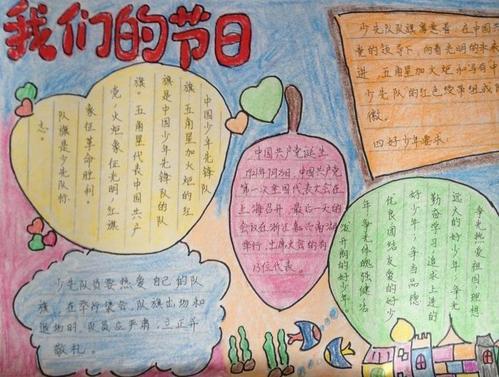 我们的节日
中国少年先锋队
旗是中国少年先锋队的
旗。五角星加火炬的红
旗。五角星代表中国共产
党，火炬象征光明，红旗
象征革命胜利。
队旗是少先队标
志。
中国共产党诞生
第一次全国代表大会在
上海召开，最后一天的
会议在浙江
举行，出席大会的有
13位代表。
少先队队旗
的领导下，向着光明的未来
进，五角星加火炬
少先队的
徽。
四好少年要求
争当热爱祖国、理想
远大的好少年，争当
勤奋学习、追求上进的
好少年，争当品德
优良、团结友爱的好少
年，争当体魄强健、活
泼开朗的好少年。
少先队员要热爱自己的队
旗，在举行集会，队旗出场和
退场时，队员应严肃，立正并
敬礼。